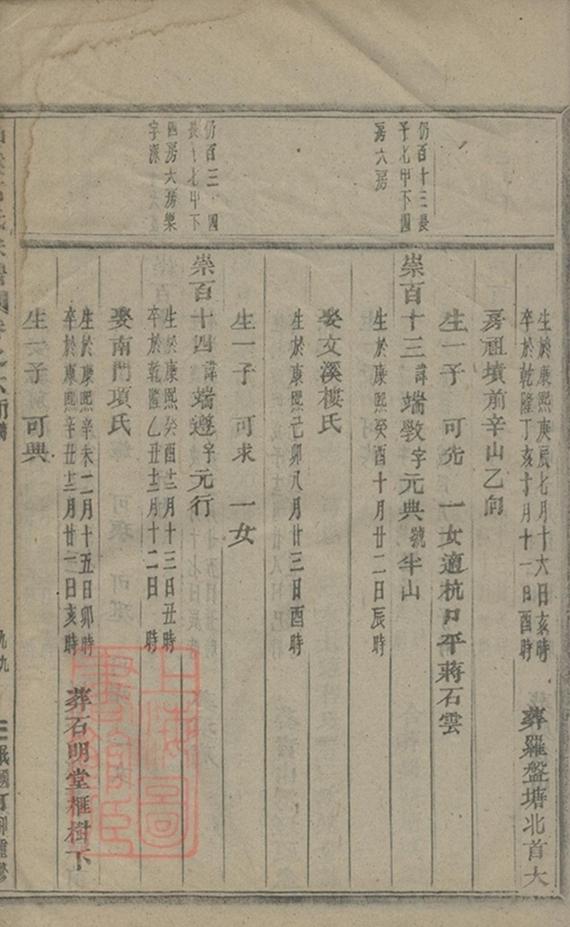 仍百十三長
子化甲下四
房六房
仍百三 四
長 化甲下
四房六房樂
字派
生於康熙庚辰七月十六日亥時
卒於乾隆丁亥 月十一日酉時
葬羅盤塘北首大
房祖墳前辛山乙向
生一子 可先 一女適杭口平蔣石雲
崇百十三諱端教字元典號半山
生於康熙癸酉十月廿二日辰時
娶文溪樓氏
生於康熙己卯八月廿三日酉時
生一子 可求 一女
崇百十四諱端遵字元行
生於康熙癸酉十二月十三日丑時
卒於乾隆乙丑十二月十二日 時
娶南門項氏
生於康熙辛未二月十五日卯時
卒於康熙辛丑十二月廿一日亥時
葬石明堂框樹下
生一子 可興
九九
上海圖書館藏